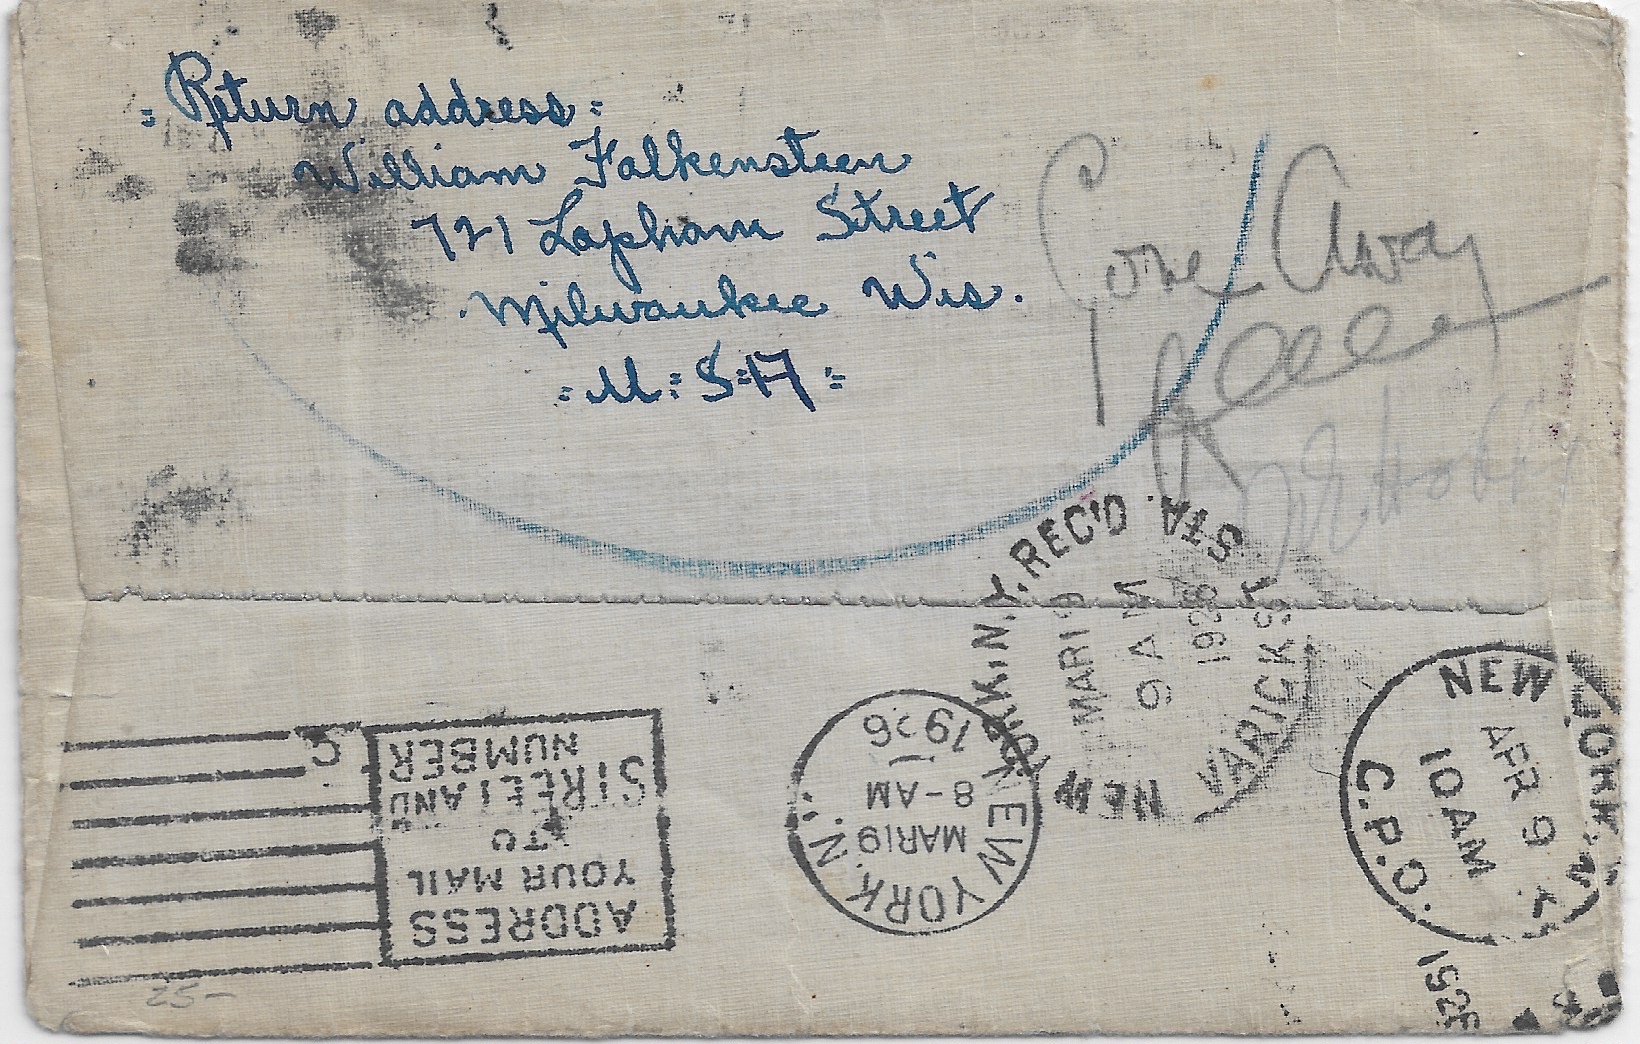 = Return address =
William Falkensteen
721 Lapham Street
Milwaukee Wis.
= U = S = A =
Gone Away
NEW YORK, N.Y. REC'D.
VARICK ST. STA.
MAR 19
9 AM
1926
NEW YORK, N.Y.
MAR 19
8-AM
1926
C
ADDRESS
YOUR MAIL
TO
STREET AND
NUMBER
NEW YORK, N.Y.
APR 9
10 AM
C.P.O.
1926
25-